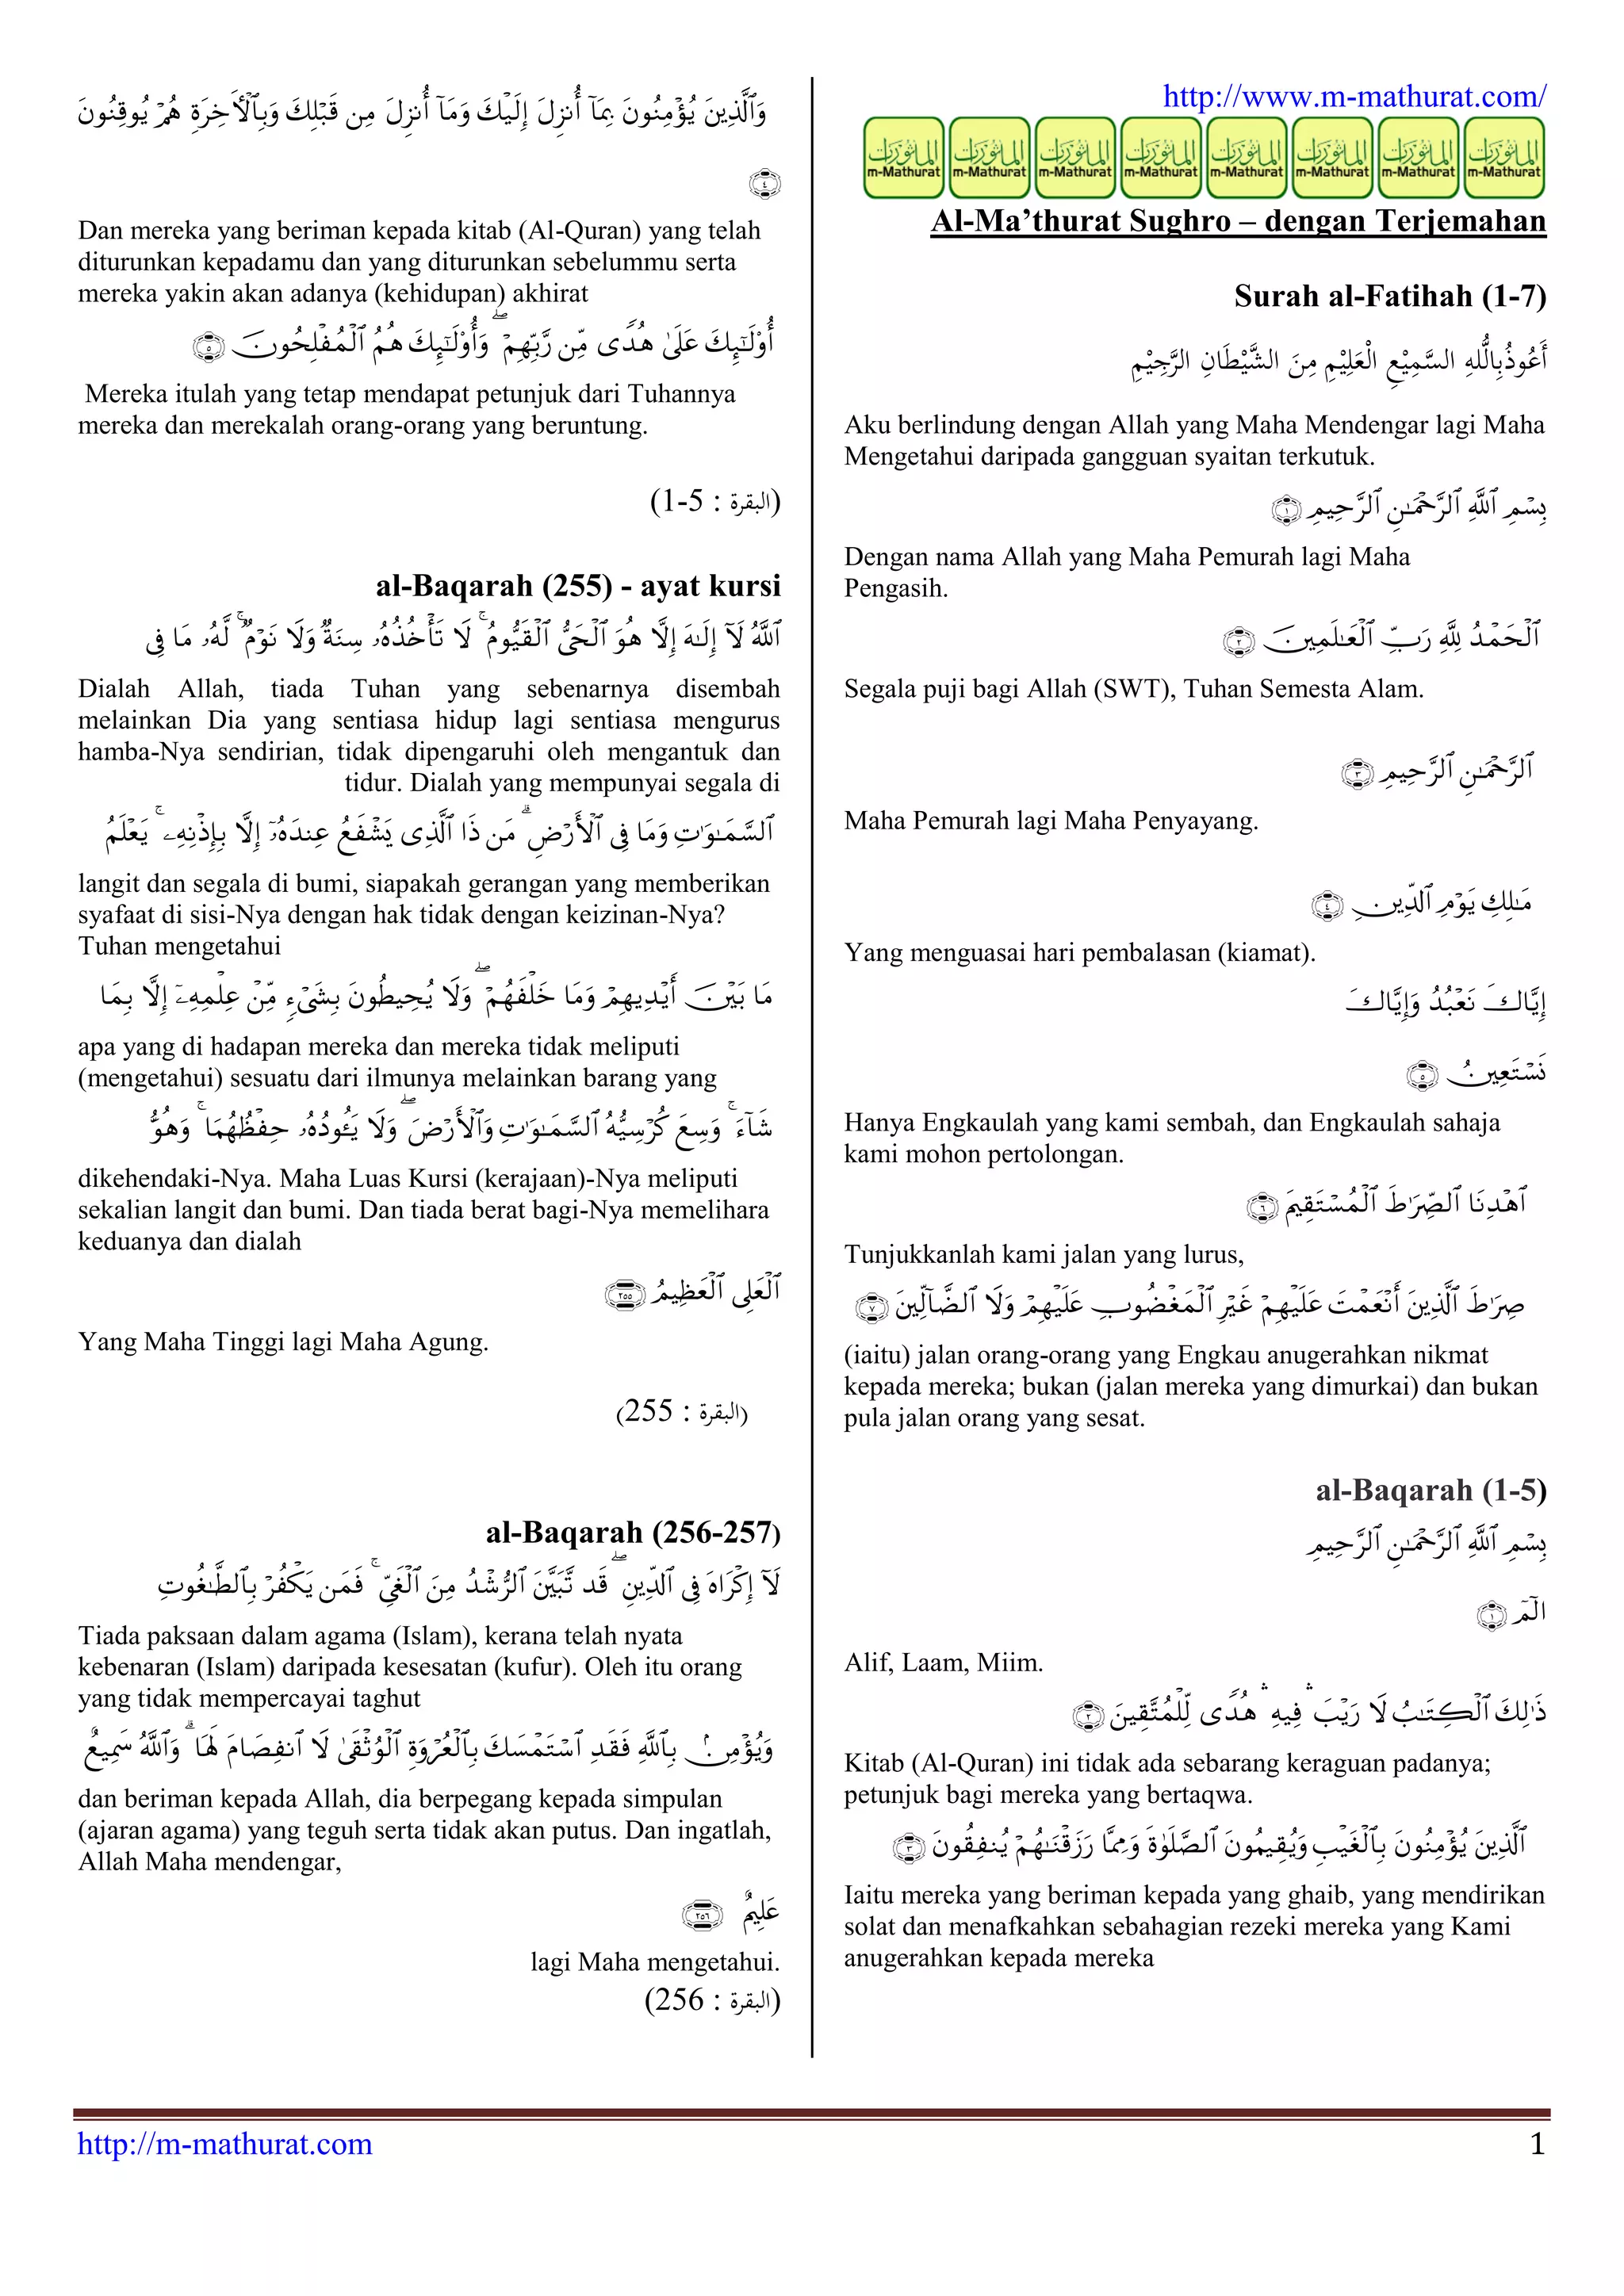 http://www.m-mathurat.com/
المأثورات المأثورات المأثورات المأثورات المأثورات المأثورات المأثورات المأثورات
m-Mathurat m-Mathurat m-Mathurat m-Mathurat m-Mathurat m-Mathurat m-Mathurat m-Mathurat
Al-Ma’thurat Sughro – dengan Terjemahan
Surah al-Fatihah (1-7)
أَعُوذُبِاللَّهِ السَّمِيْعِ الْعَلِيْمِ مِنَ الشَّيْطَانِ الرَّجِيْمِ
Aku berlindung dengan Allah yang Maha Mendengar lagi Maha
Mengetahui daripada gangguan syaitan terkutuk.
بِسْمِ ٱللَّهِ ٱلرَّحْمَٰنِ ٱلرَّحِيمِ ١
Dengan nama Allah yang Maha Pemurah lagi Maha
Pengasih.
ٱلْحَمْدُ لِلَّهِ رَبِّ ٱلْعَٰلَمِينَ ٢
Segala puji bagi Allah (SWT), Tuhan Semesta Alam.
ٱلرَّحْمَٰنِ ٱلرَّحِيمِ ٣
Maha Pemurah lagi Maha Penyayang.
مَٰلِكِ يَوْمِ ٱلدِّينِ ٤
Yang menguasai hari pembalasan (kiamat).
إِيَّاكَ نَعْبُدُ وَإِيَّاكَ
نَسْتَعِينُ ٥
Hanya Engkaulah yang kami sembah, dan Engkaulah sahaja
kami mohon pertolongan.
ٱهْدِنَا ٱلصِّرَٰطَ ٱلْمُسْتَقِيمَ ٦
Tunjukkanlah kami jalan yang lurus,
صِرَٰطَ ٱلَّذِينَ أَنْعَمْتَ عَلَيْهِمْ غَيْرِ ٱلْمَغْضُوبِ عَلَيْهِمْ وَلَا ٱلضَّآلِّينَ ٧
(iaitu) jalan orang-orang yang Engkau anugerahkan nikmat
kepada mereka; bukan (jalan mereka yang dimurkai) dan bukan
pula jalan orang yang sesat.
al-Baqarah (1-5)
بِسْمِ ٱللَّهِ ٱلرَّحْمَٰنِ ٱلرَّحِيمِ
الٓمٓ ١
Alif, Laam, Miim.
ذَٰلِكَ ٱلْكِتَٰبُ لَا رَيْبَ ۛ فِيهِ ۛ هُدًى لِّلْمُتَّقِينَ ٢
Kitab (Al-Quran) ini tidak ada sebarang keraguan padanya;
petunjuk bagi mereka yang bertaqwa.
ٱلَّذِينَ يُؤْمِنُونَ بِٱلْغَيْبِ وَيُقِيمُونَ ٱلصَّلَوٰةَ وَمِمَّا رَزَقْنَٰهُمْ يُنفِقُونَ ٣
Iaitu mereka yang beriman kepada yang ghaib, yang mendirikan
solat dan menafkahkan sebahagian rezeki mereka yang Kami
anugerahkan kepada mereka
وَٱلَّذِينَ يُؤْمِنُونَ بِمَآ أُنزِلَ إِلَيْكَ وَمَآ أُنزِلَ مِن قَبْلِكَ وَبِٱلْأَخِرَةِ هُمْ يُوقِنُونَ
٤
Dan mereka yang beriman kepada kitab (Al-Quran) yang telah
diturunkan kepadamu dan yang diturunkan sebelummu serta
mereka yakin akan adanya (kehidupan) akhirat
أُو۟لَٰٓئِكَ عَلَىٰ هُدًى مِّن رَّبِّهِمْ ۖ وَأُو۟لَٰٓئِكَ هُمُ ٱلْمُفْلِحُونَ ٥
Mereka itulah yang tetap mendapat petunjuk dari Tuhannya
mereka dan merekalah orang-orang yang beruntung.
(البقرة : 5-1)
al-Baqarah (255) - ayat kursi
ٱللَّهُ لَآ إِلَٰهَ إِلَّا هُوَ ٱلْحَىُّ ٱلْقَيُّومُ ۚ لَا تَأْخُذُهُۥ سِنَةٌ وَلَا نَوْمٌ ۚ لَّهُۥ مَا فِى
Dialah Allah, tiada Tuhan yang sebenarnya disembah
melainkan Dia yang sentiasa hidup lagi sentiasa mengurus
hamba-Nya sendirian, tidak dipengaruhi oleh mengantuk dan
tidur. Dialah yang mempunyai segala di
ٱلسَّمَٰوَٰتِ وَمَا فِى ٱلْأَرْضِ ۗ مَن ذَا ٱلَّذِى يَشْفَعُ عِندَهُۥٓ إِلَّا بِإِذْنِهِۦ ۚ يَعْلَمُ
langit dan segala di bumi, siapakah gerangan yang memberikan
syafaat di sisi-Nya dengan hak tidak dengan keizinan-Nya?
Tuhan mengetahui
مَا بَيْنَ أَيْدِيهِمْ وَمَا خَلْفَهُمْ ۖ وَلَا يُحِيطُونَ بِشَىْءٍ مِّنْ عِلْمِهِۦٓ إِلَّا بِمَا
apa yang di hadapan mereka dan mereka tidak meliputi
(mengetahui) sesuatu dari ilmunya melainkan barang yang
شَآءَ ۚ وَسِعَ كُرْسِيُّهُ ٱلسَّمَٰوَٰتِ وَٱلْأَرْضَ ۖ وَلَا يَـُٔودُهُۥ حِفْظُهُمَا ۚ وَهُوَ
dikehendaki-Nya. Maha Luas Kursi (kerajaan)-Nya meliputi
sekalian langit dan bumi. Dan tiada berat bagi-Nya memelihara
keduanya dan dialah
ٱلْعَلِىُّ ٱلْعَظِيمُ ٢٥٥
Yang Maha Tinggi lagi Maha Agung.
(البقرة : 255)
al-Baqarah (256-257)
لَآ إِكْرَاهَ فِى ٱلدِّينِ ۖ قَد تَّبَيَّنَ ٱلرُّشْدُ مِنَ ٱلْغَىِّ ۚ فَمَن يَكْفُرْ بِٱلطَّٰغُوتِ
Tiada paksaan dalam agama (Islam), kerana telah nyata
kebenaran (Islam) daripada kesesatan (kufur). Oleh itu orang
yang tidak mempercayai taghut
وَيُؤْمِنۢ بِٱللَّهِ فَقَدِ ٱسْتَمْسَكَ بِٱلْعُرْوَةِ ٱلْوُثْقَىٰ لَا ٱنفِصَامَ لَهَا ۗ وَٱللَّهُ سَمِيعٌ
dan beriman kepada Allah, dia berpegang kepada simpulan
(ajaran agama) yang teguh serta tidak akan putus. Dan ingatlah,
Allah Maha mendengar,
عَلِيمٌ ٢٥٦
lagi Maha mengetahui.
(البقرة : 256)
http://m-mathurat.com 1